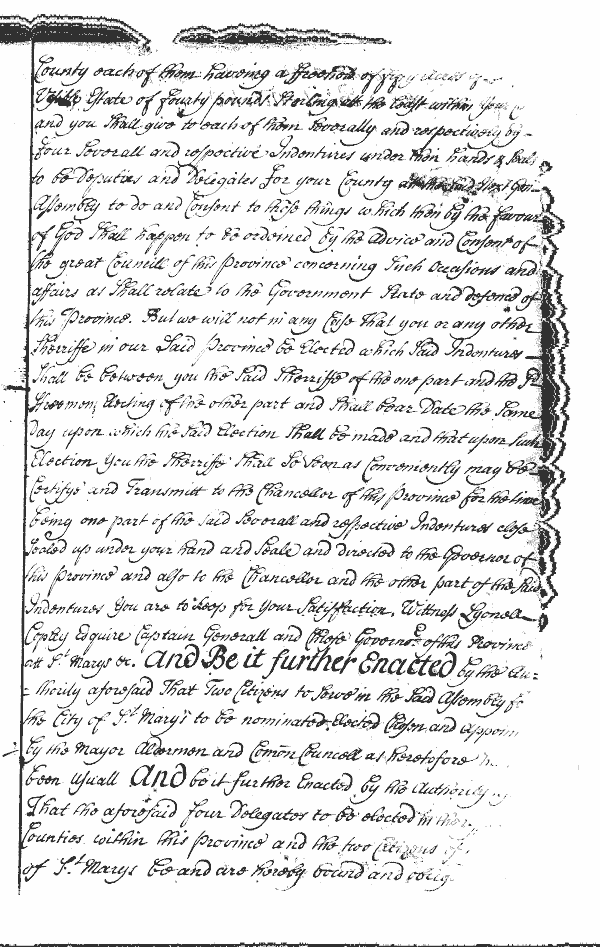 County each of them haveing a freehold of fifty acres of
Vissible Estate of fourty pounds Sterling att the least within your
and you Shall give to each of them Severally and respectively by
four Severall and respective Indentures under their hands & Seals
to be Deputies and Delegates for your County at the said Next Gen
Assembly to do and Consent to those things which then by the favour
of God Shall happen to be ordeined by the Advice and Consent of
the great Councill of this Province concerning Such Occasions and
affairs as Shall relate to the Government State and defence of
this Province. But we will not in any Case that you or any other
Sherriffe in our Said Province be Elected which Said Indentures
Shall be between you the Said Sherriffe of the one part and the Sd
Freemen Electing of the other part and Shall bear Date the Same
Day upon which the Said Election Shall be made and that upon Such
Election you the Sherriffe Shall So Soon as Conveniently may be
Certifye and Transmitt to the Chancellor of this Province for the time
being one part of the Said Severall and respective Indentures close
Sealed up under your hand and Seale and directed to the Governor of
this Province and also to the Chancellor and the other part of the Said
Indentures You are to keep for your Satisfaction. Wittness Lyonell
Copley Esquire Captain Generall and Chiefe Governor of this Province
att St Marys &c. And Be it further Enacted by the Au-
-thority aforesaid That Two Citizens to Serve in the Said Assembly fo
the City of St Mary's to be nominated Elected Chosen and Appoin
by the Mayor Aldermen and Comōn Councell as heretofore
been usuall And be it further Enacted by the Authority
That the aforesaid four Delegates to be elected in the
Counties within this Province and the two Citizens of
of St Marys be and are hereby bound and oblig